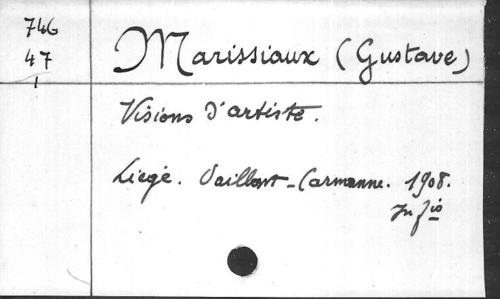 746
47
1
Marissiaux (Gustave)
Visions d'artiste.
Liège. Vaillant-Carmanne. 1908.
In fio